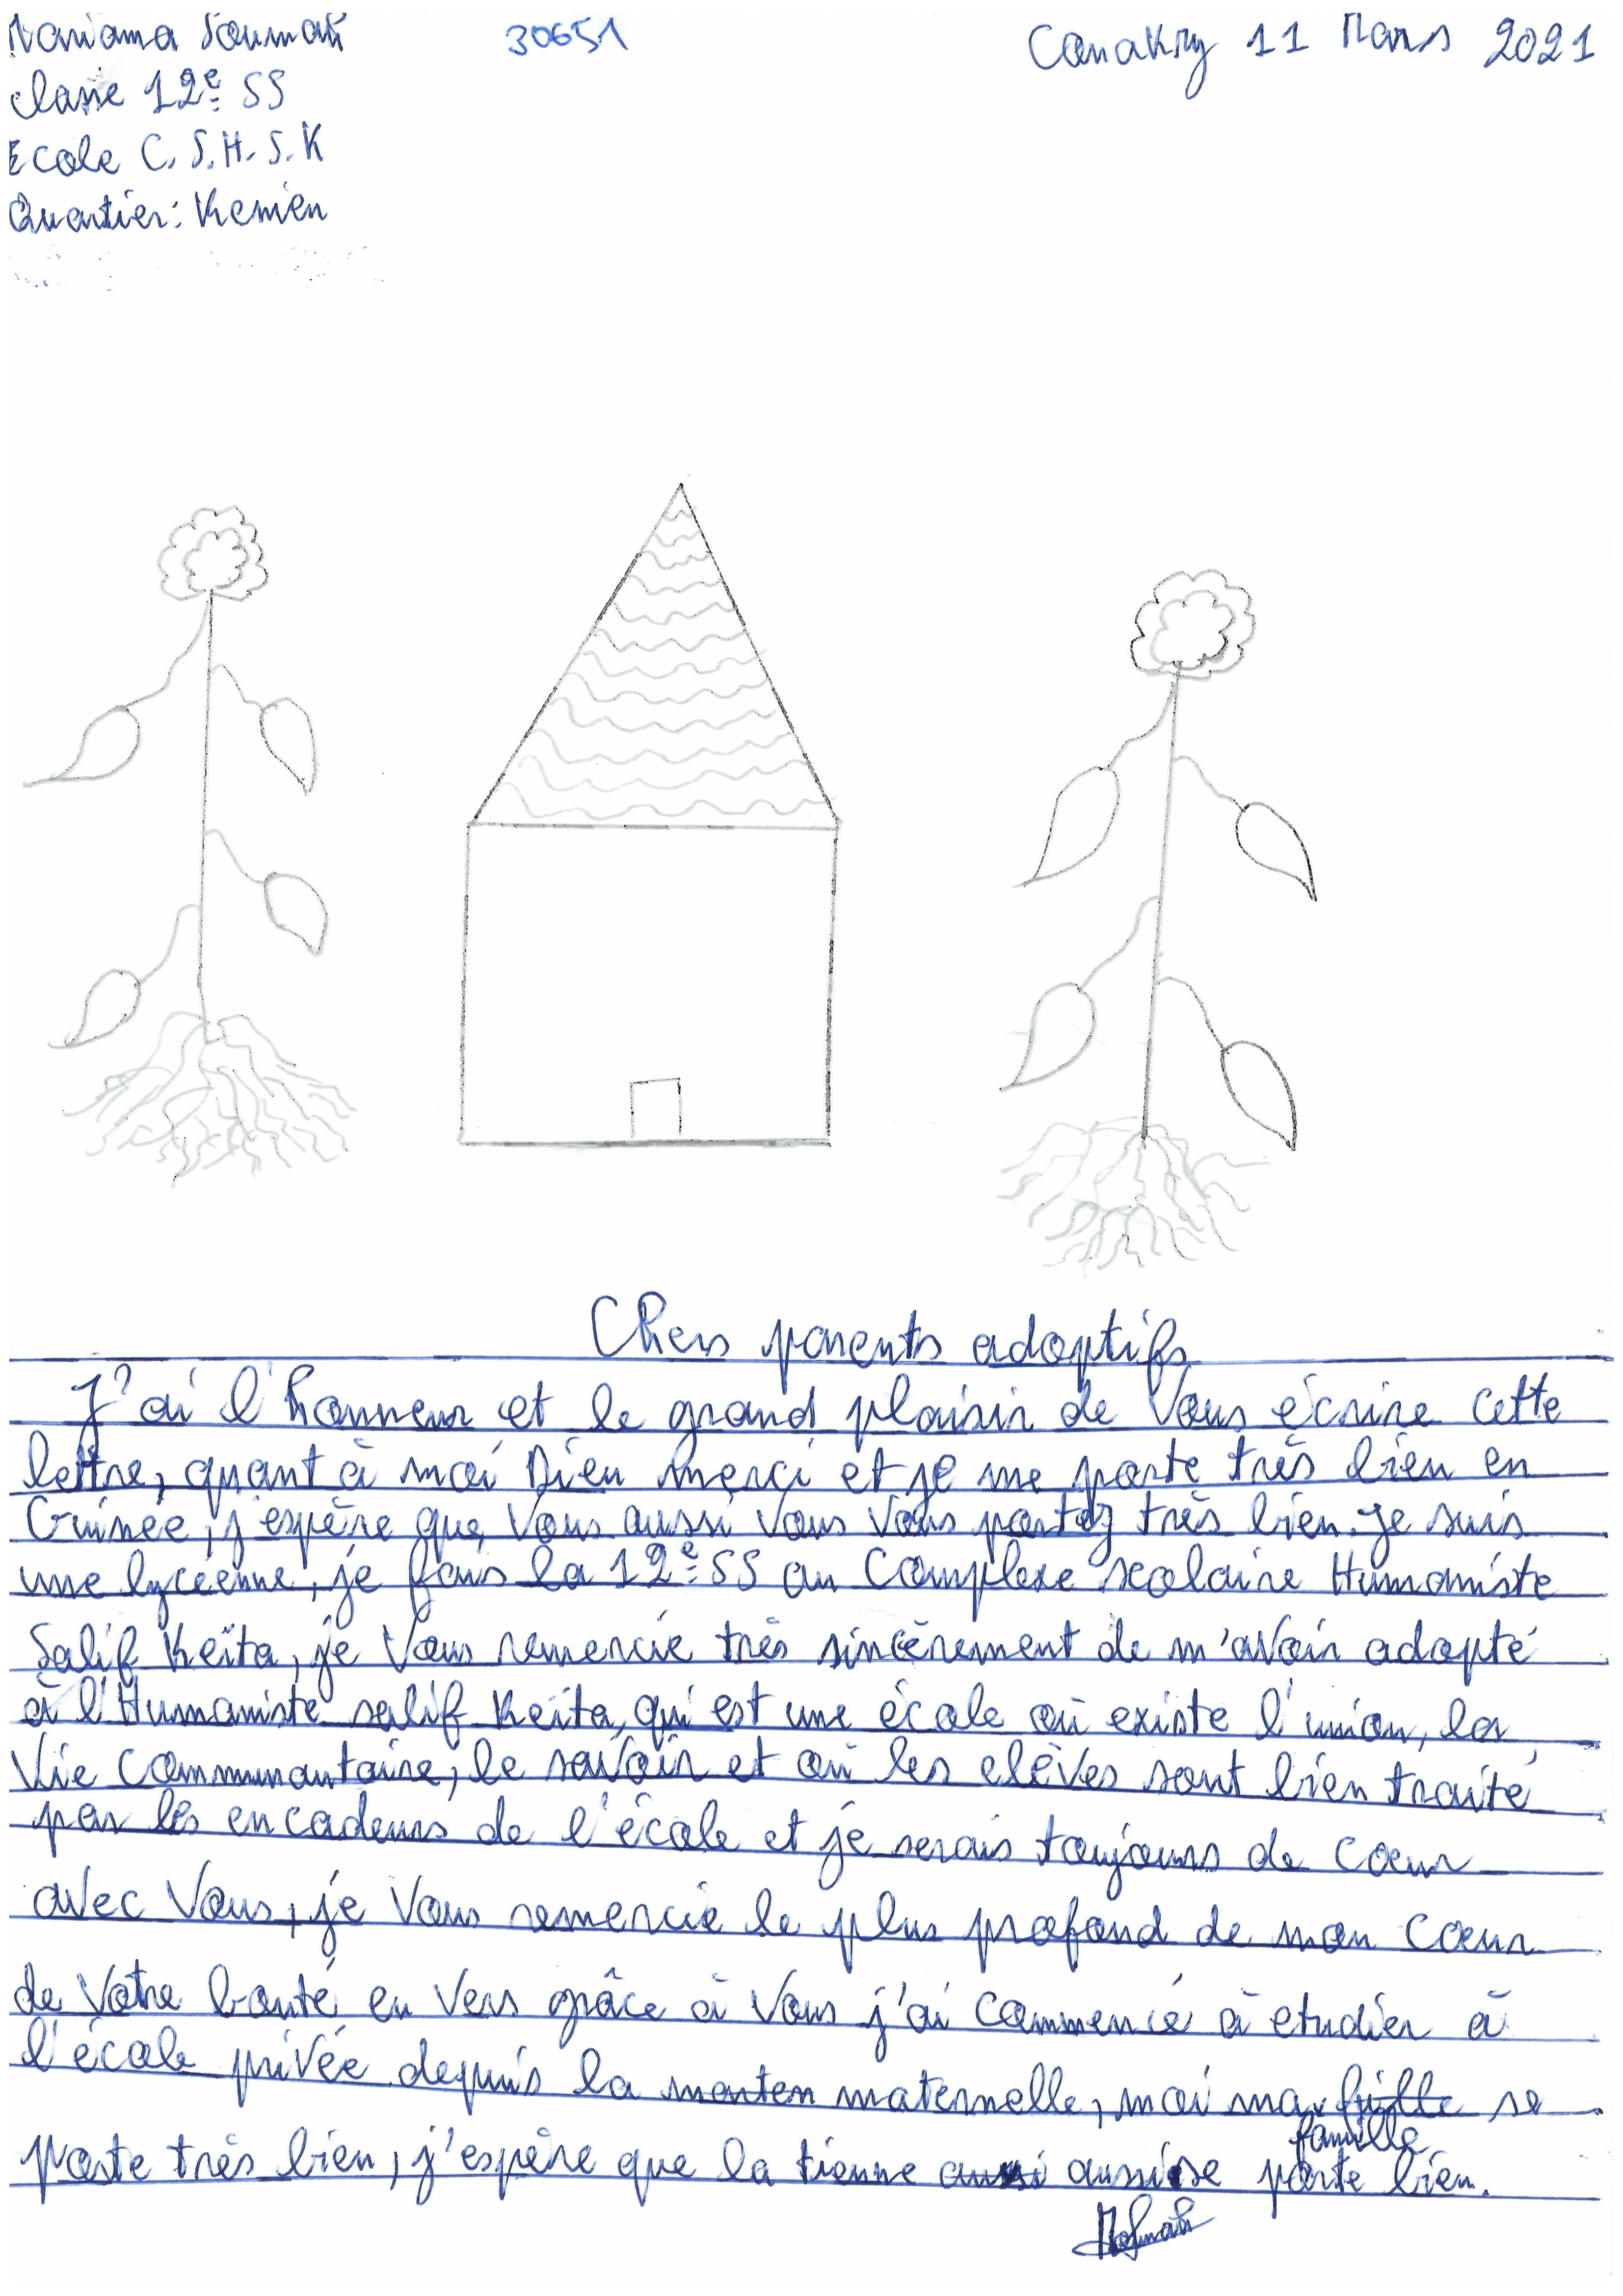 Mariama Soumah 30651 Conakry 11 Mars 2021
Classe 12e SS
Ecole C.S.H.S.K
Quartier: Kenien
Chers parents adoptifs
J'ai l'honneur et le grand plaisir de Vous écrire cette
lettre, quant à moi Dieu merci et je me porte très bien en
Guinée, j'espère que Vous aussi Vous Vous portez très bien. Je suis
une lycéenne, je fais la 12e SS au Complexe scolaire Humaniste
Salif Keïta, je Vous remercie très sincèrement de m'avoir adopté
à l'Humaniste salif Keïta, qui est une école où existe l'union, la
Vie Communautaire, le savoir et où les elèves sont bien traité
par les encadeurs de l'école et je serais toujours de coeur
avec Vous, je Vous remercie le plus profond de mon Coeur
de Votre bonté en Vers grâce à Vous j'ai Commencé à etudier à
l'école privée depuis la maternelle, moi ma famille se
porte très bien, j'espère que la tienne aussi se porte bien.